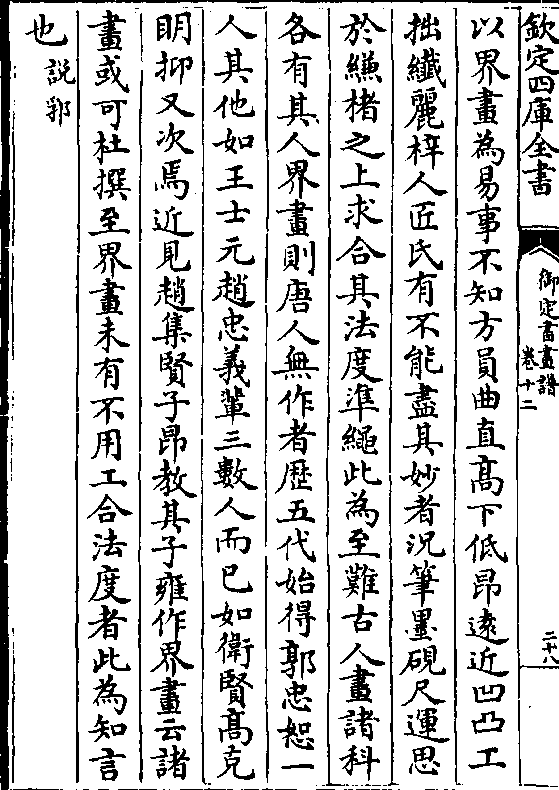 欽定四庫全書
御定書畫譜
卷十二
二十八
以界畫為易事不知方員曲直髙下低昂逺近凹凸工
拙纎麗梓人匠氏有不能盡其妙者況筆墨硯尺運思
於縑楮之上求合其法度準繩此為至難古人畫諸科
各有其人界畫則唐人無作者歴五代始得郭忠恕一
人其他如王士元趙忠義輩三數人而已如衛賢髙克
眀抑又次焉近見趙集賢子昂教其子雍作界畫云諸
畫或可杜撰至界畫未有不用工合法度者此為知言
也說郛